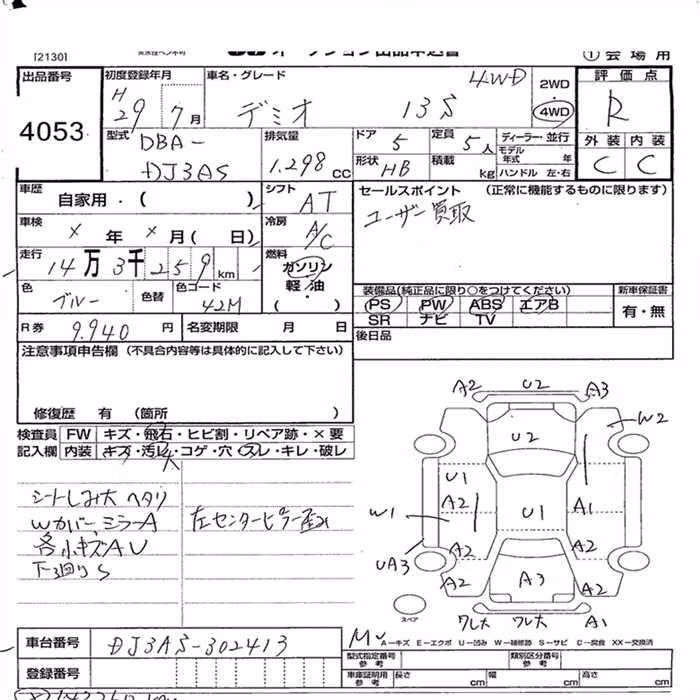 [2130]
① 会場用
出品番号 初度登録年月 車名・グレード 4WD 2WD 評価点
4053 H29 7月 デミオ 13S 4WD R
型式 排気量 ドア 定員 ディーラー・並行 外装 内装
DBA-DJ3AS 1.298 CC 5 5人 モデル年式 年 C C
形状 HB 積載 kg ハンドル 左・右
車歴 自家用・( ) シフト AT セールスポイント (正常に機能するものに限ります)
車検 × 年 × 月( 日) 冷房 A/C ユーザー買取
走行 14万3千259km 燃料 ガソリン 軽・油 ( )
色 ブルー 色替 色コード 42M
装備品(純正品に限り○をつけてください) 新車保証書
PS PW ABS エアB 有・無
SR ナビ TV
R券 9.940 円 名変期限 月 日 後日品
注意事項申告欄 (不具合内容等は具体的に記入して下さい)
修復歴 有 (箇所 )
検査員 FW キズ・飛石・ヒビ割・リペア跡・×要
記入欄 内装 キズ・汚レ・コゲ・穴・スレ・キレ・破レ
大
シートしみ大 ヘタリ
Wカバー、ミラーA 左センターピラー歪
各小キズAU
下廻りS
A2 U2 A3
W2
U2
U1
A2 U1 A1
W1
UA3 A2 A2
A2 A3 A2
ワレ大 ワレ大 A1
スペア
車台番号 DJ3AS-302413
登録番号
A-キズ E-エクボ U-凹み W-補修跡 S-サビ C-腐食 XX-交換済
型式指定番号 参考 類別区分番号 参考
車庫証明用 参考 長さ cm 幅 cm 高さ cm